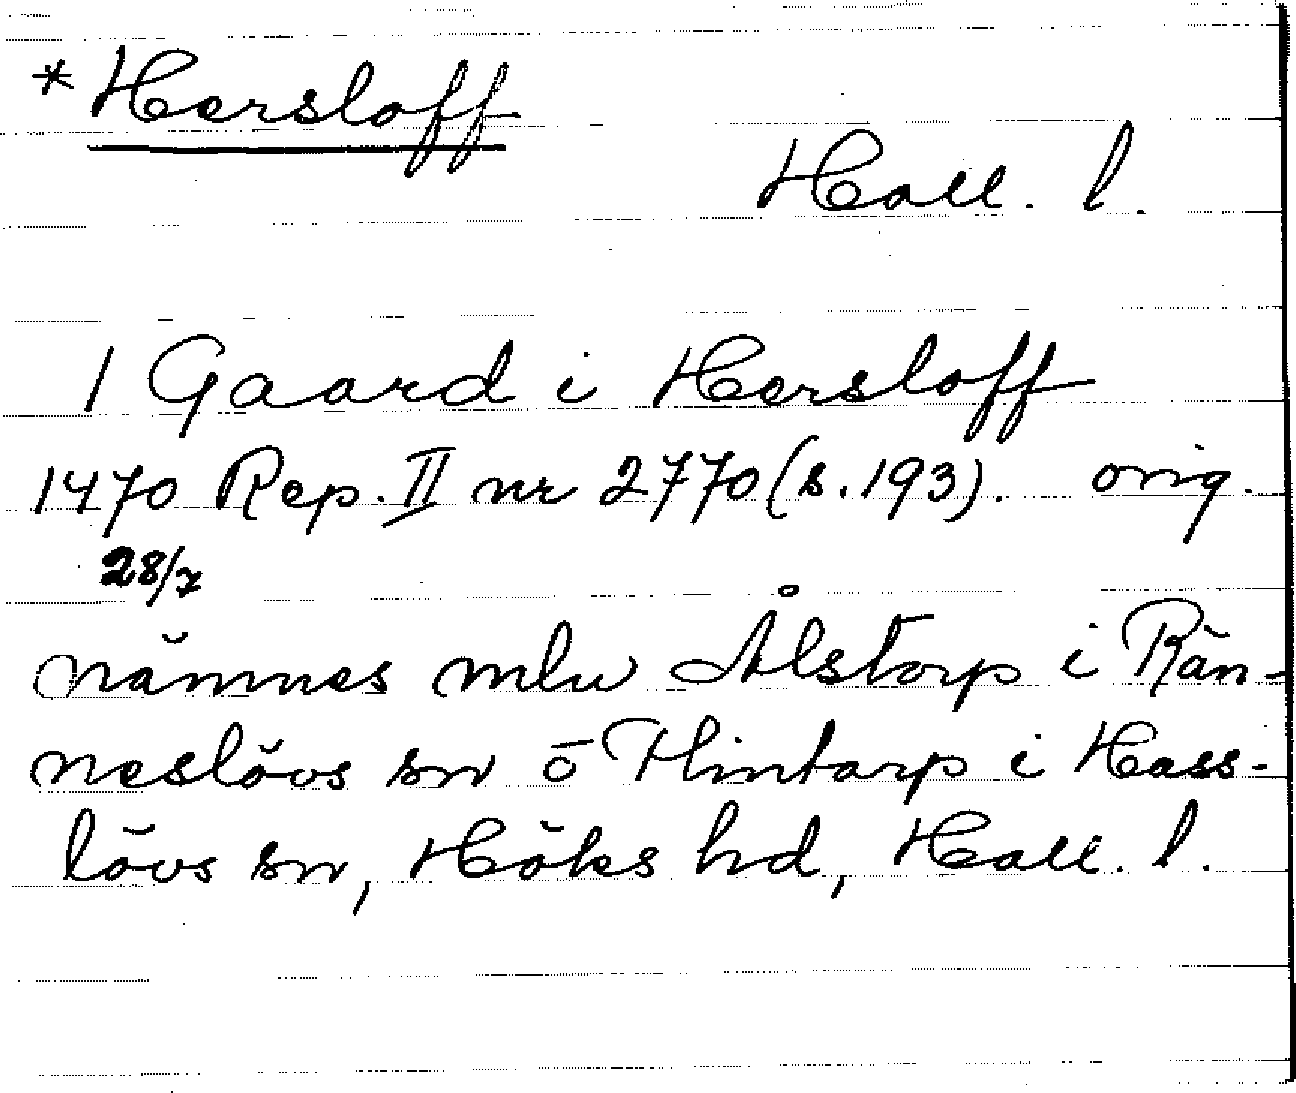 *Hersloff
Hall. l.
1 Gaard i Hersloff
1470 Rep. II nr 2770 (s. 193). orig.
28/7
nämnes mlw Ålstorp i Rän-
neslövs sn o Flintarp i Hass-
lövs sn, Höks hd, Hall. l.